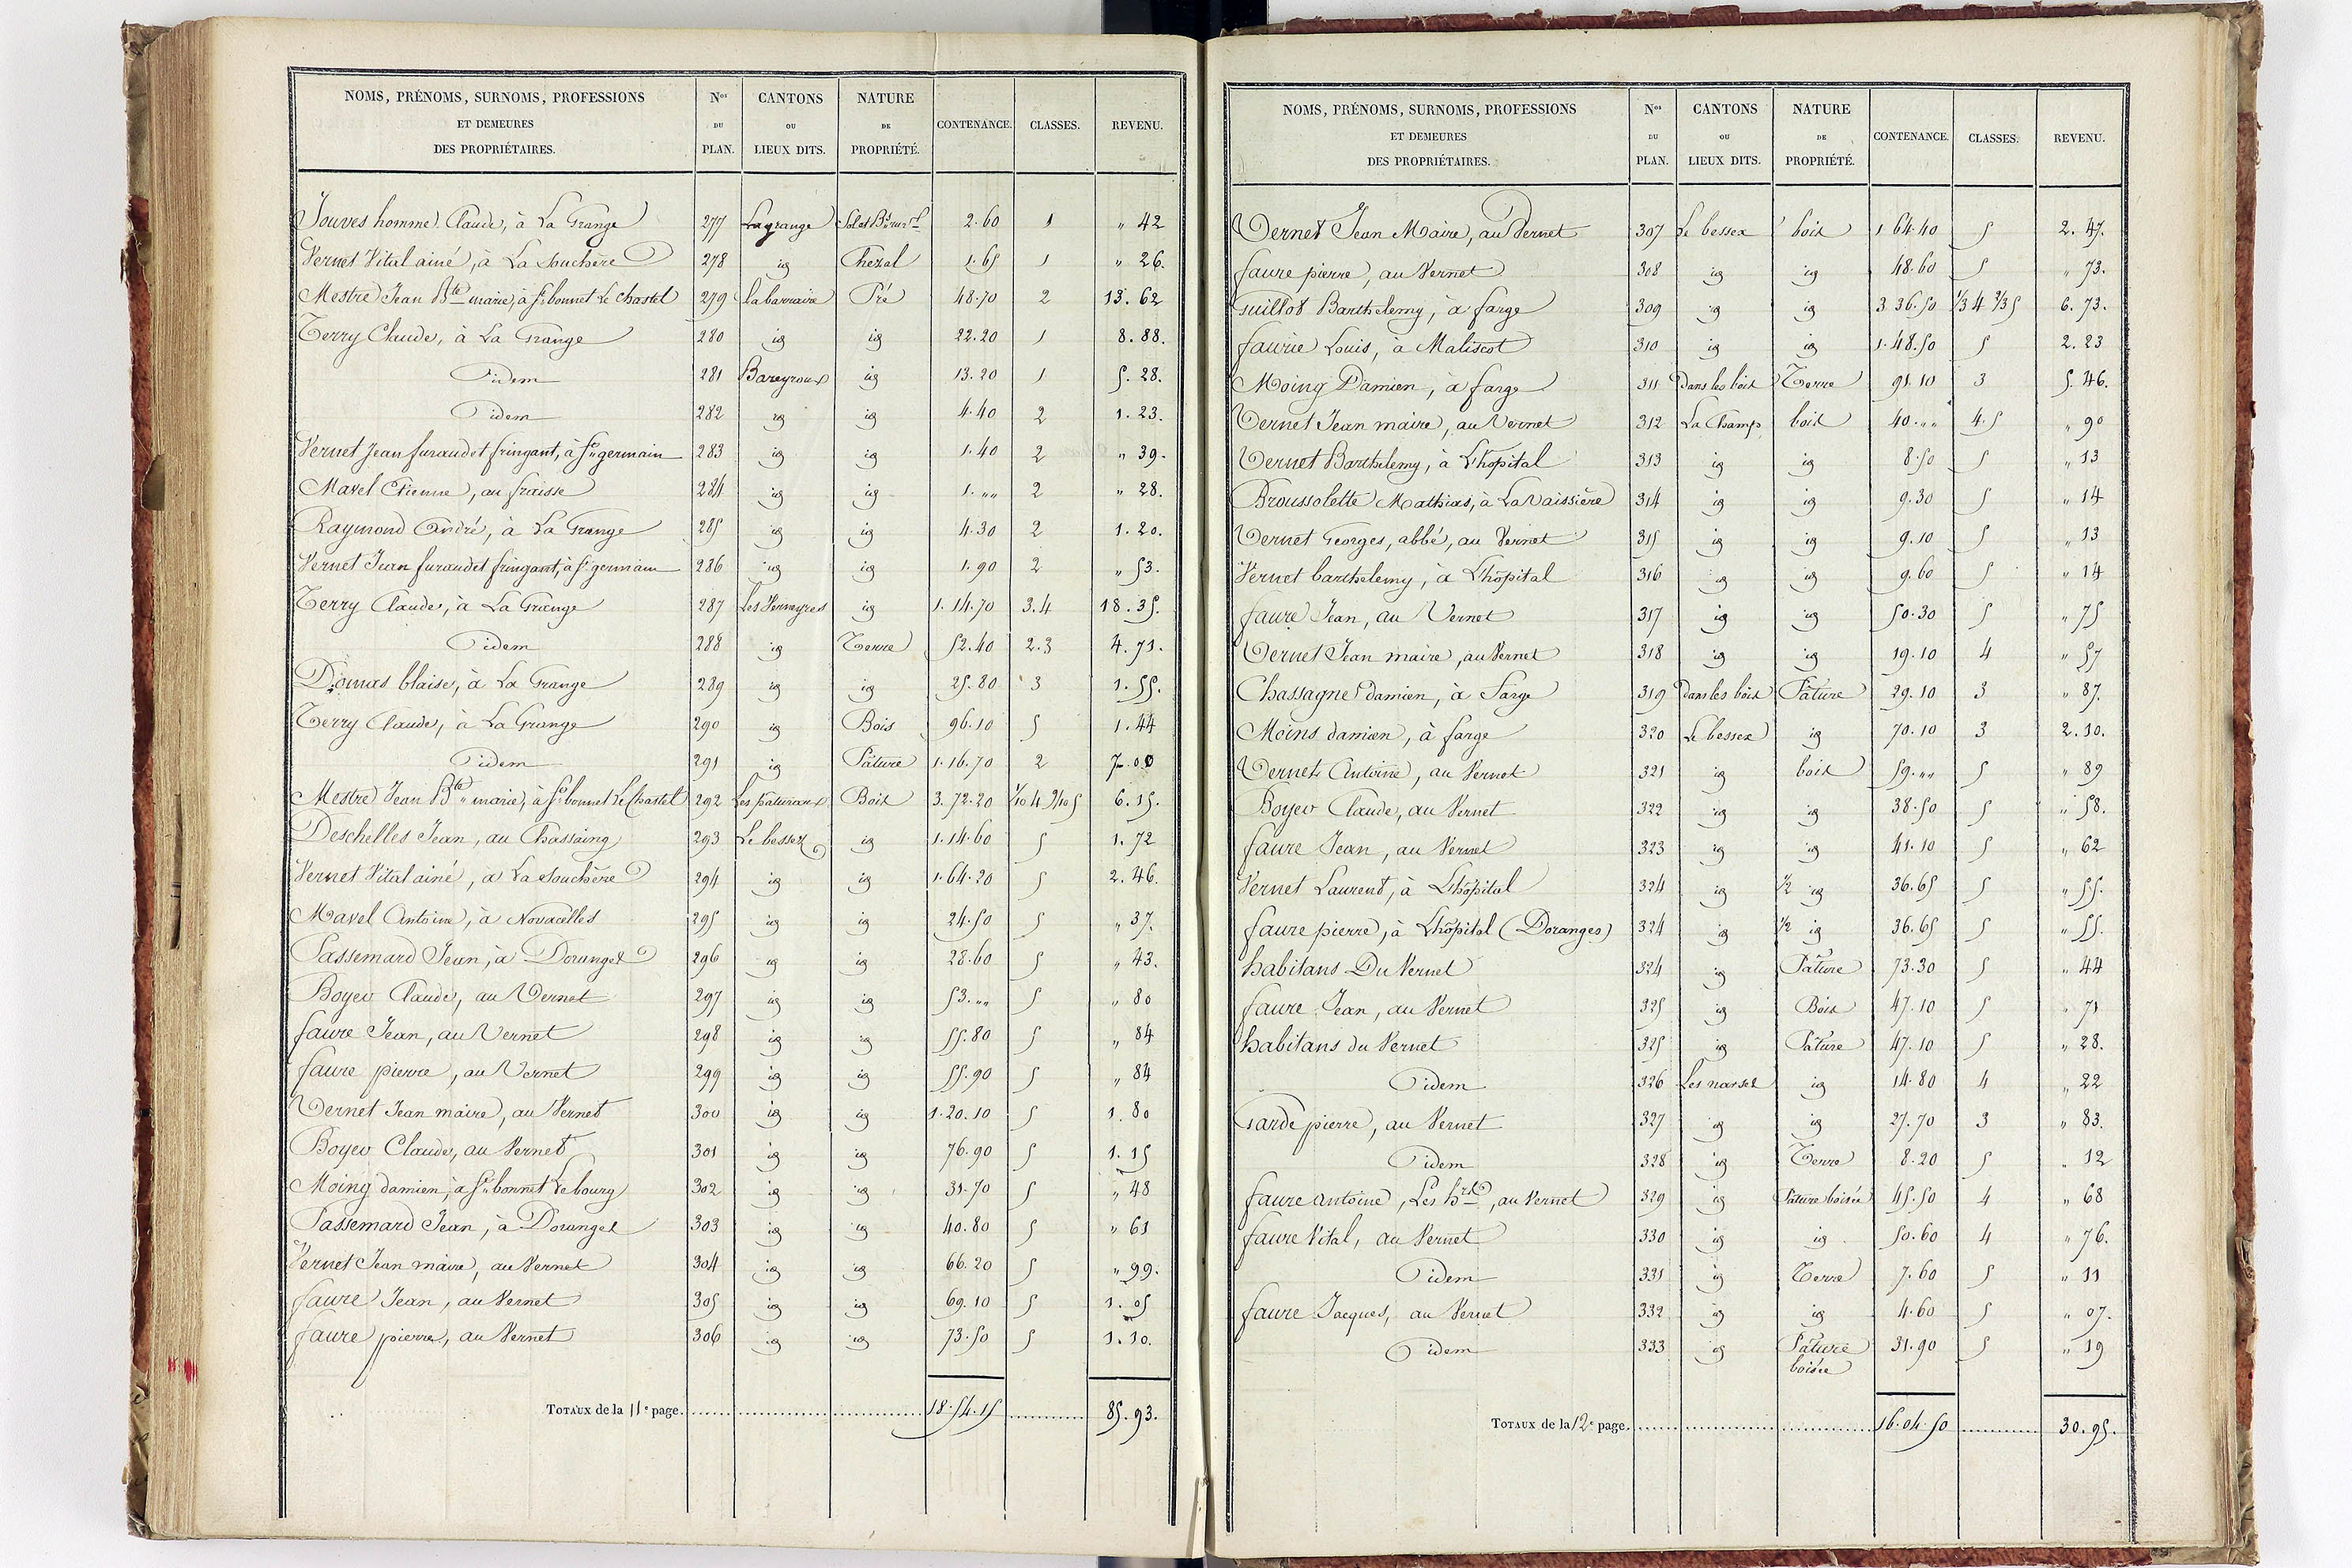 NOMS, PRÉNOMS, SURNOMS, PROFESSIONS ET DEMEURES DES PROPRIÉTAIRES. Nos DU PLAN. CANTONS OU LIEUX DITS. NATURE DE PROPRIÉTÉ. CONTENANCE. CLASSES. REVENU.
Jouves homme Claude, à La Grange 277 Lagrange Sol et Bt rural 2.60 1 " 42
Vernet Vital ainé, à La Souchère 278 id Chezal 1.65 1 " 26.
Mestre Jean Bte marie, à St bonnet Le chastel 279 Pré 48.70 2 13.62
Terry Claude, à La Grange 280 id id 22.20 1 8.88.
idem 281 Bareyroux id 13.20 1 5.28.
idem 282 id id 4.40 2 1.23.
Vernet Jean furaud et fringant, à St germain 283 id id 1.40 2 " 39.
Mavel Etienne, au fraisse 284 id id 1. "" 2 " 28.
Raymond André, à La Grange 285 id id 4.30 2 1.20.
Vernet Jean furaud et fringant, à St germain 286 id id 1.90 2 " 53.
Terry Claude, à La Grange 287 Les Verneyres id 1.14.70 3.4 18.35.
idem 288 id Terre 52.40 2.3 4.71.
Domas blaise, à La Grange 289 id id 25.80 3 1.55.
Terry Claude, à La Grange 290 id Bois 96.10 5 1.44
idem 291 id Pâture 1.16.70 2 7.00
Mestre Jean Bte marie, à St bonnet Le Chastel 292 Les paturaux Bois 3.72.20 1/10 4 9/10 5 6.15.
Deschelles Jean, au Chassaing 293 Le bessex id 1.14.60 5 1.72
Vernet Vital ainé, à La Souchère 294 id id 1.64.20 5 2.46.
Mavel Antoine, à Novacelles 295 id id 24.50 5 " 37.
Passemard Jean, à Doranges 296 id id 28.60 5 " 43.
Boyer Claude, au Vernet 297 id id 53. "" 5 " 80
faure Jean, au Vernet 298 id id 55.80 5 " 84
faure pierre, au Vernet 299 id id 55.90 5 " 84
Vernet Jean maire, au Vernet 300 id id 1.20.10 5 1.80
Boyer Claude, au Vernet 301 id id 76.90 5 1.15
Moing damien, à St bonnet Le bourg 302 id id 31.70 5 " 48
Passemard Jean, à Doranges 303 id id 40.80 5 " 61
Vernet Jean maire, au Vernet 304 id id 66.20 5 " 99.
faure Jean, au Vernet 305 id id 69.10 5 1.05
faure pierre, au Vernet 306 id id 73.50 5 1.10.
TOTAUX de la 11e page. 18.54.15 85.93.
NOMS, PRÉNOMS, SURNOMS, PROFESSIONS ET DEMEURES DES PROPRIÉTAIRES. Nos DU PLAN. CANTONS OU LIEUX DITS. NATURE DE PROPRIÉTÉ. CONTENANCE. CLASSES. REVENU.
Vernet Jean Maire, au Vernet 307 Le bessex bois 1.64.40 5 2.47.
faure pierre, au Vernet 308 id id 48.60 5 " 73.
Guillot Barthelemy, à farge 309 id id 3.36.50 1/3 4 2/3 5 6.73.
faurie Louis, à Maliscot 310 id id 1.48.50 5 2.23
Moing Damien, à farge 311 dans les bois Terre 91.10 3 5.46.
Vernet Jean maire, au Vernet 312 La Champs bois 40. "" 4.5 " 90
Vernet Barthelemy, à L'hopital 313 id id 8.50 5 " 13
Broussolette Mathias, à La Vaissière 314 id id 9.30 5 " 14
Vernet Georges, abbé, au Vernet 315 id id 9.10 5 " 13
Vernet barthelemy, à L'hôpital 316 id id 9.60 5 " 14
faure Jean, au Vernet 317 id id 50.30 5 " 75
Vernet Jean maire, au Vernet 318 id id 19.10 4 " 57
Chassagne damien, à Farge 319 dans les bois Pâture 29.10 3 " 87.
Moins damien, à farge 320 Le bessex id 70.10 3 2.10.
Vernet Antoine, au Vernet 321 id bois 59. "" 5 " 89
Boyer Claude, au Vernet 322 id id 38.50 5 " 58.
faure Jean, au Vernet 323 id id 41.10 5 " 62
Vernet Laurent, à L'hôpital 324 id 1/2 id 36.65 5 " 55.
faure pierre, à L'hôpital (Doranges) 324 id 1/2 id 36.65 5 " 55.
habitans Du Vernet 324 id Pâture 73.30 5 " 44
faure Jean, au Vernet 325 id Bois 47.10 5 " 71
habitans du Vernet 325 id Pâture 47.10 5 " 28.
idem 326 Les narses id 14.80 4 " 22
Garde pierre, au Vernet 327 id id 27.70 3 " 83.
idem 328 id Terre 8.20 5 " 12
faure antoine, Les hrs, au Vernet 329 id Pâture boisée 45.50 4 " 68
faure Vital, au Vernet 330 id id 50.60 4 " 76.
idem 331 id Terre 7.60 5 " 11
faure Jacques, au Vernet 332 id id 4.60 5 " 07.
idem 333 id Pâture boisée 31.90 5 " 19
TOTAUX de la 12e page. 16.04.50 30.95.